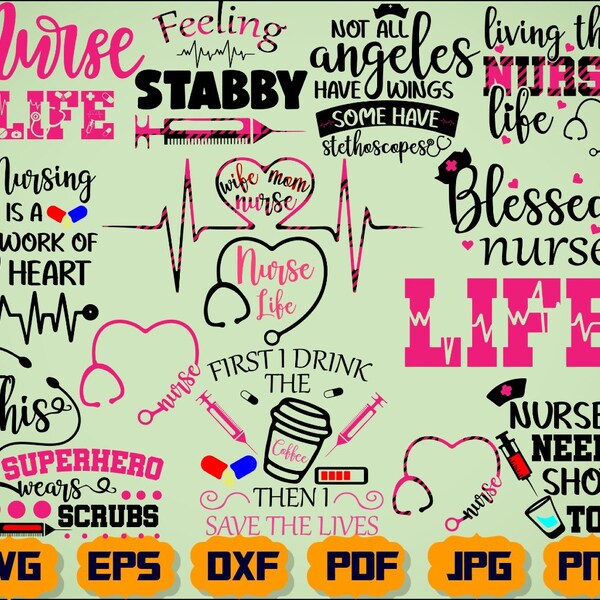 Nurse
LIFE
Feeling
STABBY
NOT ALL
angeles
HAVE WINGS
SOME HAVE
stethoscopes
living the
NURS
life
Nursing
IS A
WORK OF
HEART
wife mom
nurse
Nurse
Life
Blessed
nurse
LIFE
nurse
FIRST I DRINK
THE
Coffee
THEN I
SAVE THE LIVES
This
SUPERHERO
wears
SCRUBS
nurse
NURSE
NEED
SHO
TO
VG EPS DXF PDF JPG PN